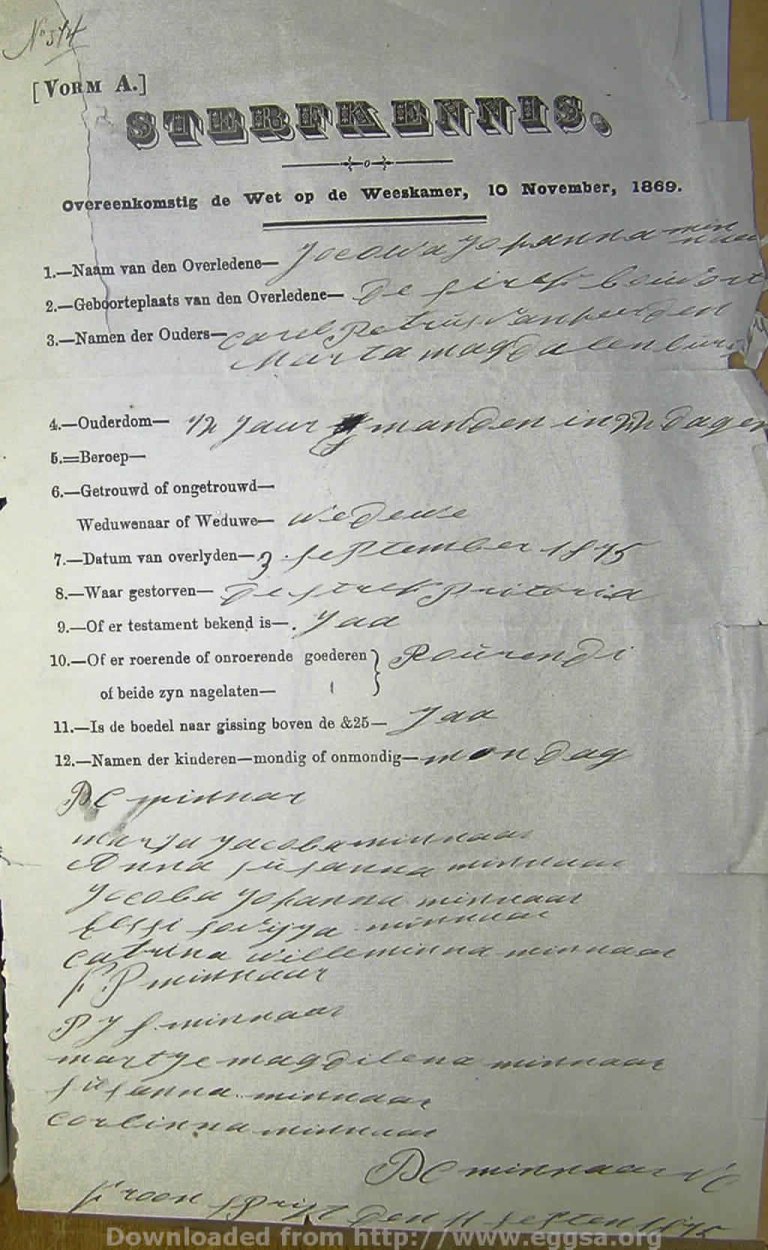 No 574
[VORM A.]
STERFKENNIS.
Overeenkomstig de Wet op de Weeskamer, 10 November, 1869.
1.—Naam van den Overledene— Johanna min
naar
2.—Geboorteplaats van den Overledene— De
3.—Namen der Ouders— Carel Petrus van
Marta magdalen
4.—Ouderdom— 42 Jaar manden in dagen
5.=Beroep—
6.—Getrouwd of ongetrouwd—
Weduwenaar of Weduwe— wedeuse
7.—Datum van overlyden— 3 September 1875
8.—Waar gestorven— Destrek pritoria
9.—Of er testament bekend is—. Jaa
10.—Of er roerende of onroerende goederen } Rourendi
of beide zyn nagelaten—
11.—Is de boedel naar gissing boven de &25— Jaa
12.—Namen der kinderen—mondig of onmondig— mondag
P C minnar
marja Jacoba minnaar
Anna susanna minnaar
Jocoba Johanna minnaar
minnaar
catrina willeminna minnaar
P minnaar
P J S minnaar
martje magdilena minnaar
susanna minnaar
corlinna minnaar
P C minnaar
den 11 septem 1875
Downloaded from http://www.eggsa.org